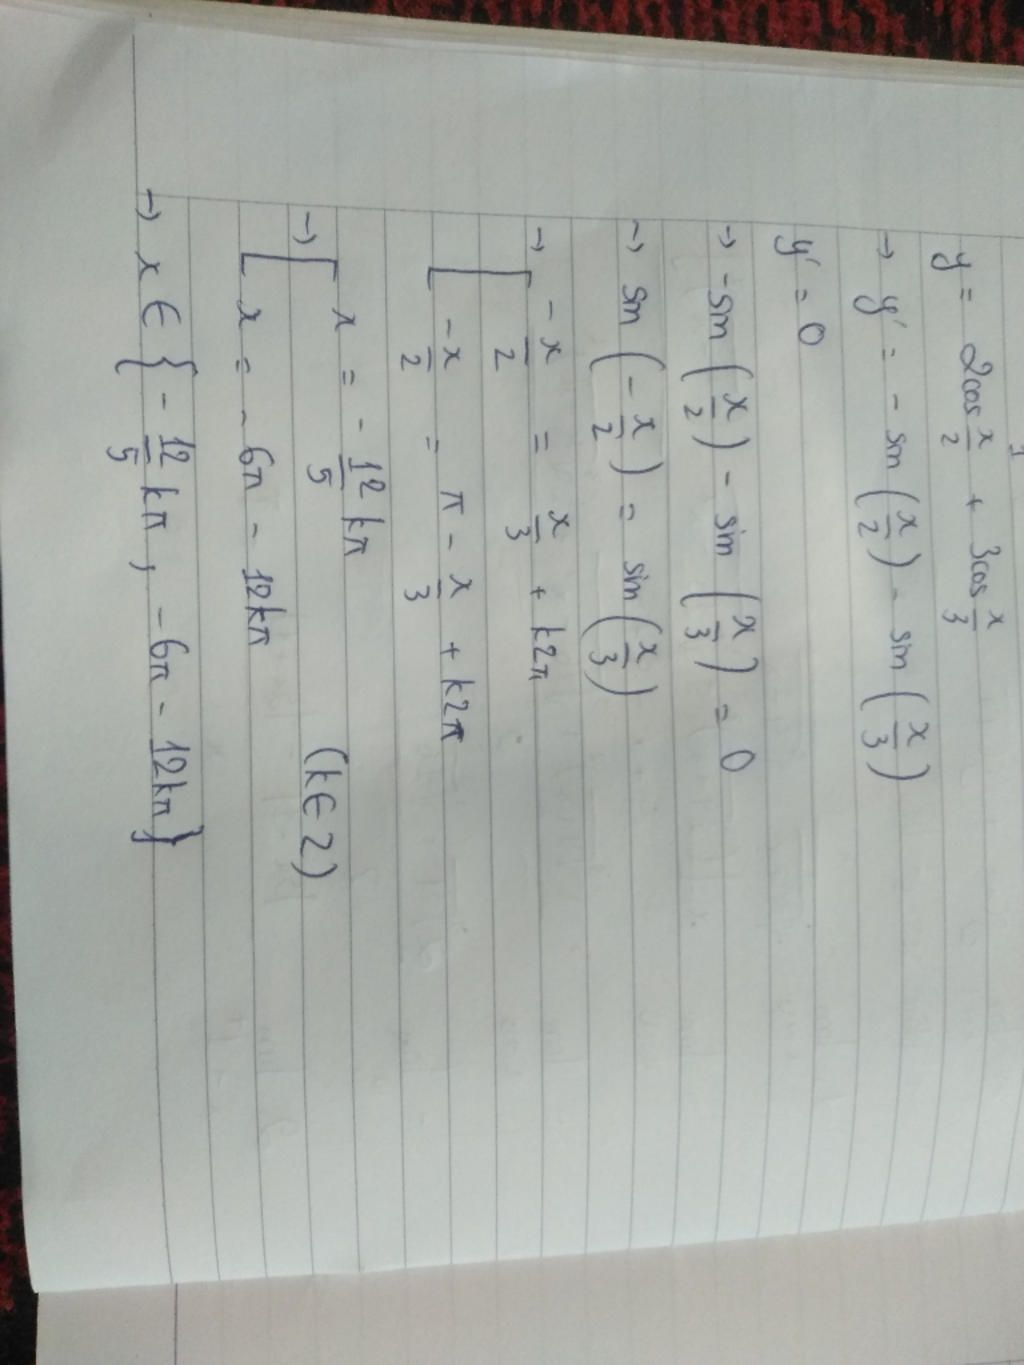 y = 2cos x/2 + 3cos x/3
→ y' = - sin (x/2) - sin (x/3)
y' = 0
→ -sin (x/2) - sin (x/3) = 0
→ sin (- x/2) = sin (x/3)
→ [ -x/2 = x/3 + k2π
-x/2 = π - x/3 + k2π
→ [ x = - 12/5 kπ
(k ∈ Z)
x = - 6π - 12kπ
→ x ∈ { - 12/5 kπ , - 6π - 12kπ }